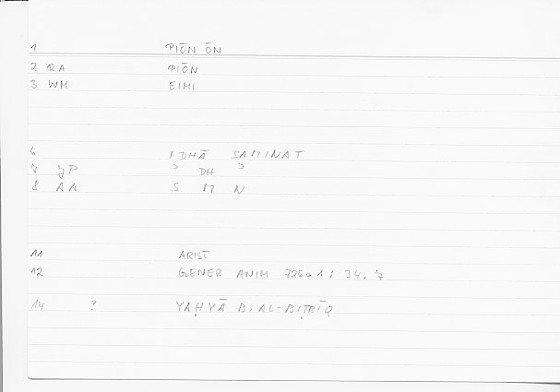 1 PIŌN ŌN
2 RA PIŌN
3 WM EIMI
6 IDHĀ SAMINAT
7 YP ʾ DH ʾ
8 AA S M N
11 ARIST
12 GENER ANIM 726a1 : 34.7
14 ? YAḤYĀ B. AL-BIṬRĪQ